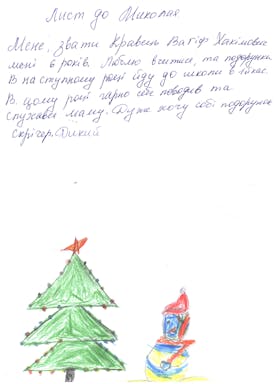 Лист до Миколая
Мене, звати Кравець Вагіф Хакімович
мені 6 років. Люблю вчитися, та подорунки.
В наступному році йду до школи в 1клас.
В цьому році гарно себе поводив та
слухався маму. Дуже хочу собі подарунок
скрічер. Дикий